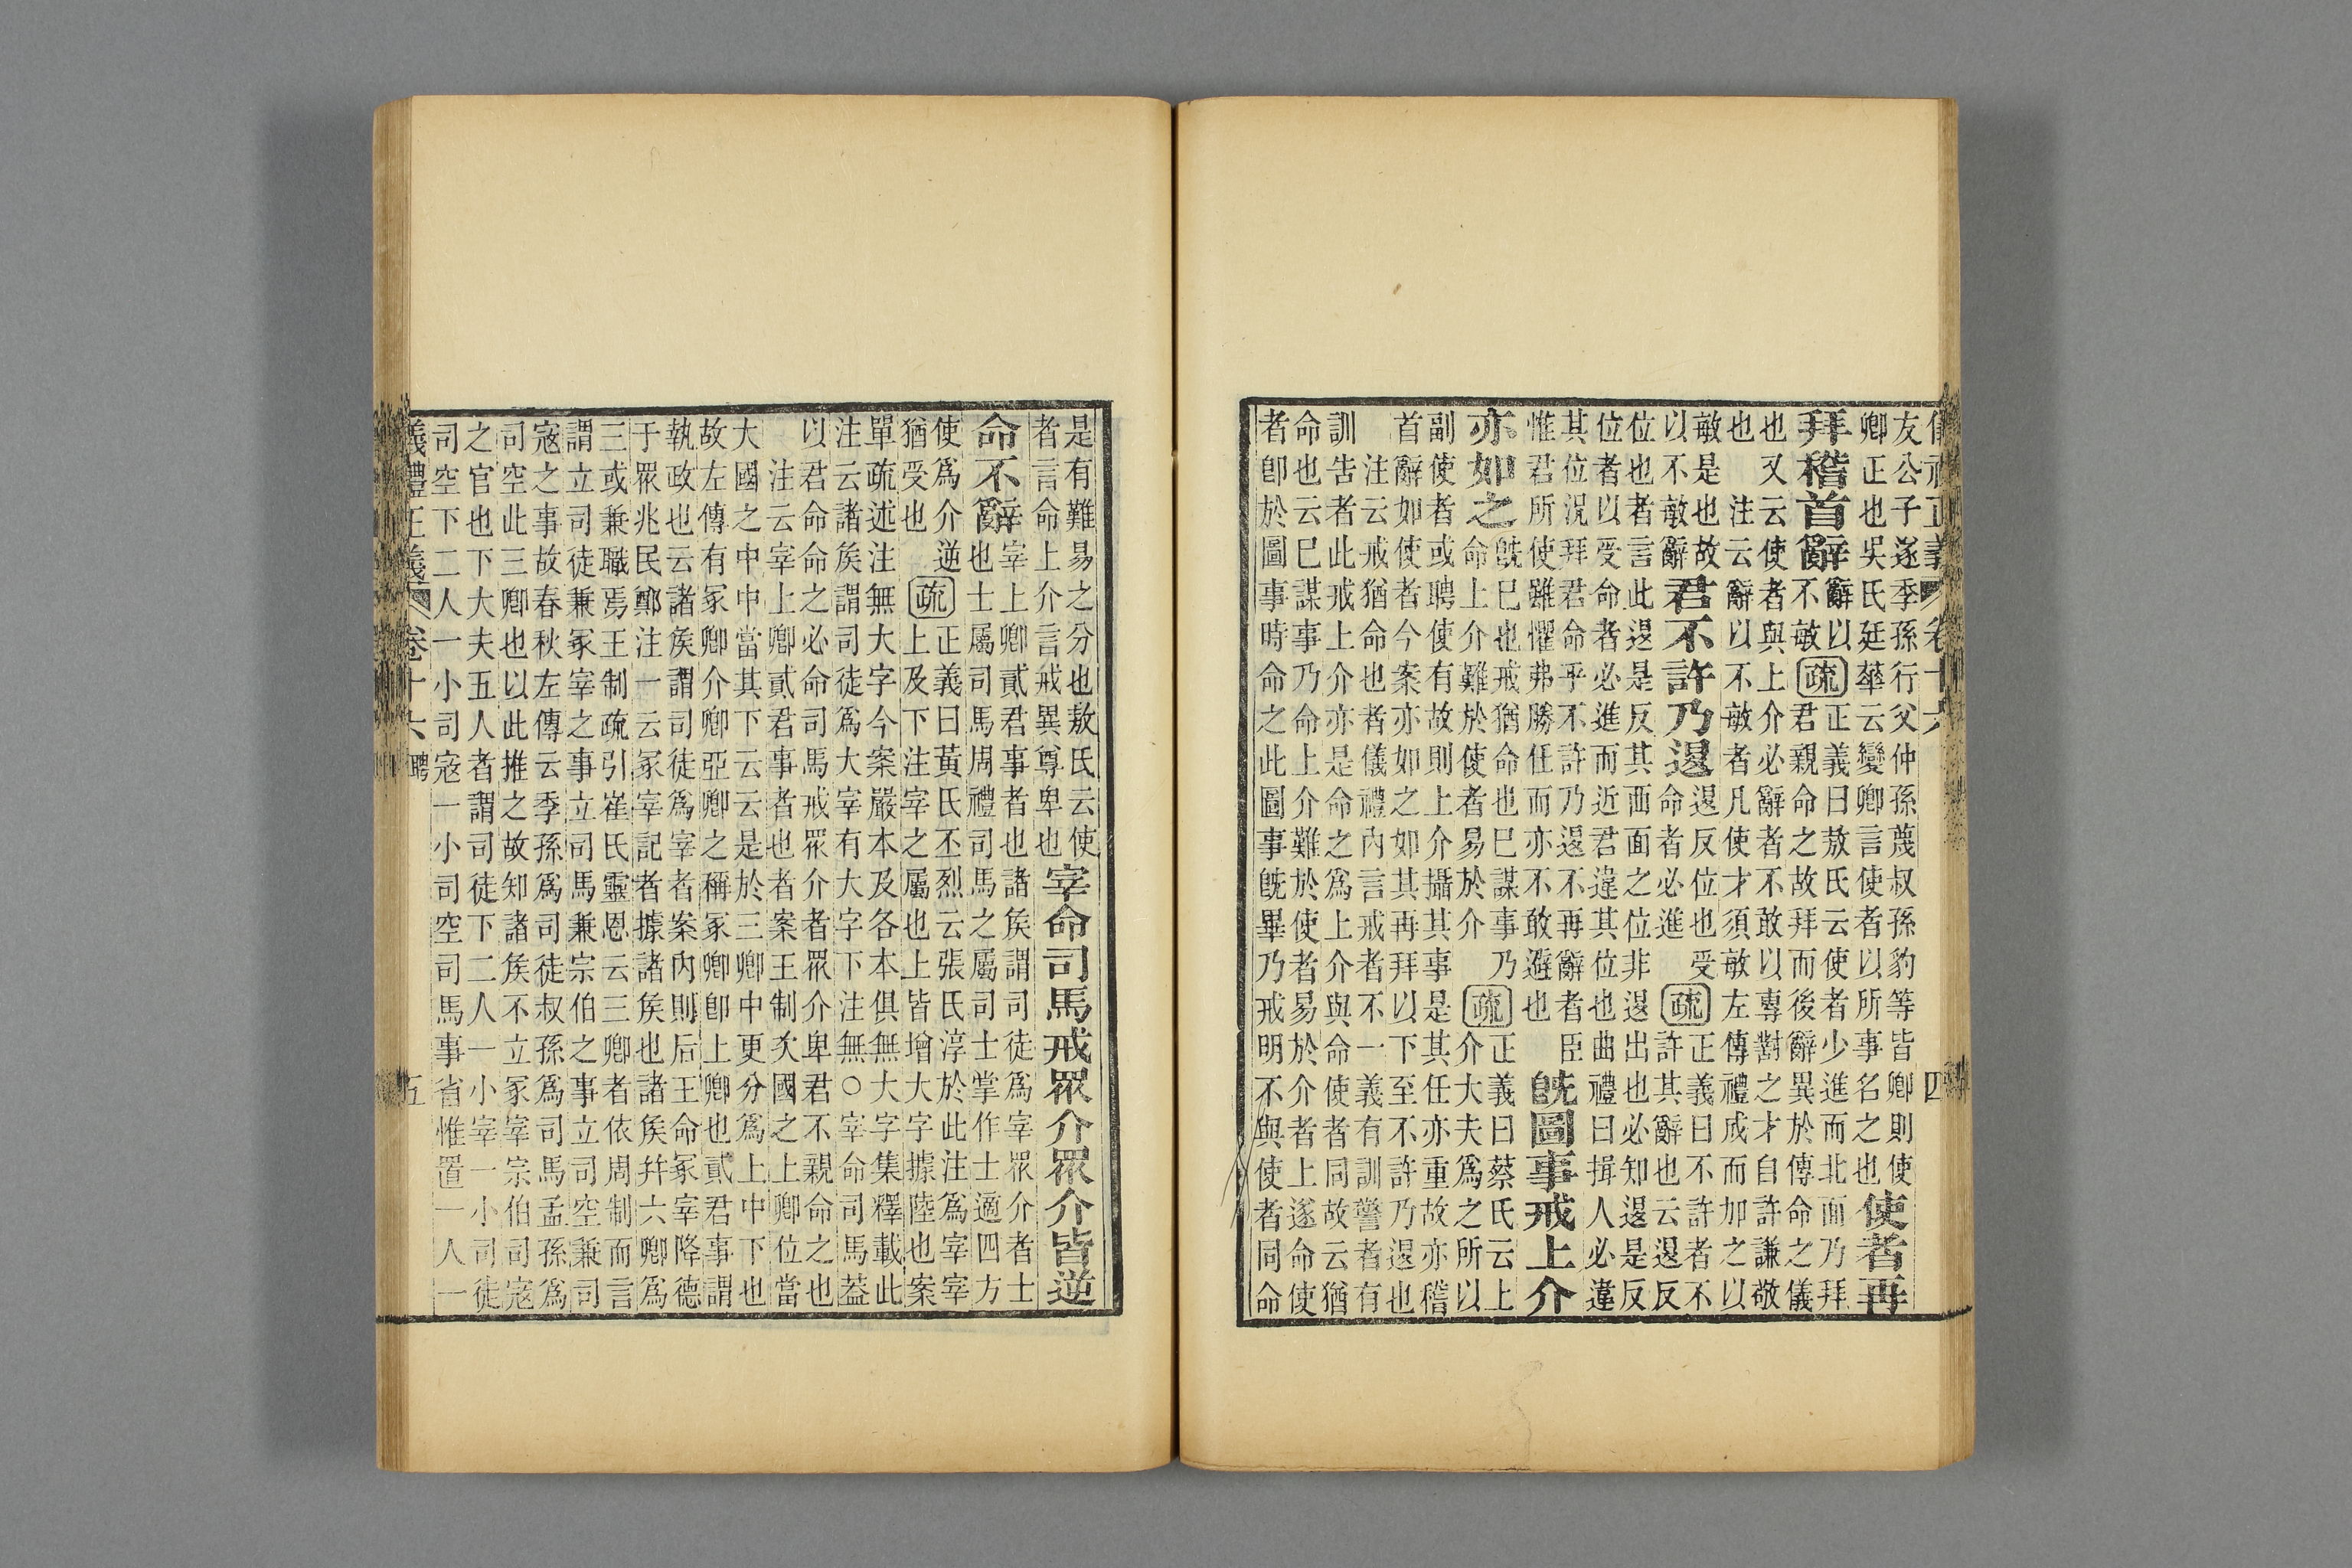 儀禮正義 卷十六 四
友公子遂季孫行父仲孫蔑叔孫豹等皆卿則使
卿正也吳氏廷華云變卿言使者以所事名之也
使者再
拜稽首辭
辭以
不敏
疏
正義曰敖氏云使者少進而北面乃拜
君親命之故拜而後辭異於傳命之儀
也又云使者與上介必辭者不敢以專對之才自許謙敬
也 注云辭以不敏者凡使才須敏左傳禮成而加之以
敏是也故
以不敏辭
君不許乃退
退反位也受
命者必進
疏
正義曰不許者不
許其辭也云退反
位也者言此退是反其西面之位非退出也必知退是反
位者以受命者必進而近君違其位也曲禮曰揖人必違
其位況拜君命乎不許乃退不再辭者臣
惟君所使雖懼弗勝任而亦不敢避也
既圖事戒上介
亦如之
既已也戒猶命也已謀事乃
命上介難於使者易於介
疏
正義曰蔡氏云上
介大夫爲之所以
副使者或聘使有故則上介攝其事是其任亦重故亦稽
首辭如使者今案亦如之如其再拜以下至不許乃退也
注云戒猶命也者儀禮內言戒者不一義有訓警者有
訓告者此戒上介亦是命之爲上介與命使者同故云猶
命也云已謀事乃命上介難於使者易於介者上遂命使
者卽於圖事時命之此圖事既畢乃戒明不與使者同命
是有難易之分也敖氏云使
者言命上介言戒異尊卑也
宰命司馬戒眾介眾介皆逆
命不辭
宰上卿貳君事者也諸矦謂司徒爲宰眾介者士
也士屬司馬周禮司馬之屬司士掌作士適四方
使爲介逆
猶受也
疏
正義曰黃氏丕烈云張氏淳於此注爲宰宰
上及下注宰之屬也上皆增大字據陸也案
單疏述注無大字今案嚴本及各本俱無大字集釋載此
注云諸矦謂司徒爲大宰有大字下注無○宰命司馬葢
以君命命之必命司馬戒眾介者眾介卑君不親命之也
注云宰上卿貳君事者也者案王制次國之上卿位當
大國之中中當其下云云是於三卿中更分爲上中下也
故左傳有冢卿介卿亞卿之稱冢卿卽上卿也貳君事謂
執政也云諸矦謂司徒爲宰者案內則后王命冢宰降德
于眾兆民鄭注一云冢宰記者據諸矦也諸矦幷六卿爲
三或兼職焉王制疏引崔氏靈恩云三卿者依周制而言
謂立司徒兼冢宰之事立司馬兼宗伯之事立司空兼司
寇之事故春秋左傳云季孫爲司徒叔孫爲司馬孟孫爲
司空此三卿也以此推之故知諸矦不立冢宰宗伯司寇
之官也下大夫五人者謂司徒下二人一小宰一小司徒
司空下二人一小司寇一小司空司馬事省惟置一人一
義禮正義 卷十六 聘 五